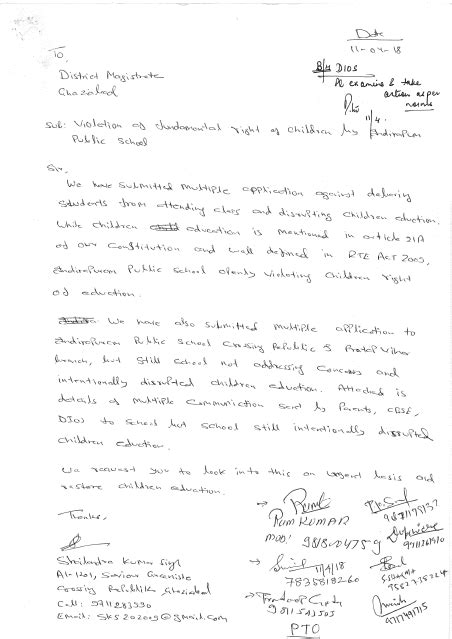 Date
11-04-18
To,
District Magistrate
Ghaziabad
DIOS
Pl examine & take
action as per
norms
11/4
Sub: Violation of fundamental right of children by Indirapuram
Public School
Sir,
We have submitted multiple application against debaring
students from attending class and disrupting children eduction.
While children education is mentioned in article 21A
of our Constitution and well defined in RTE Act 2009,
Indirapuram Public School openly violating children right
of eduction.
We have also submitted multiple application to
Indirapuram Public School Crossing Republic & Pratap Vihar
branch, but still school not addressing concerns and
intentionally disrupted children eduction. Attached is
details of multiple communication sent by Parents, CBSE,
DIOS to school but school still intentionally disrupted
children eduction.
We request you to look into this on urgent basis and
restore children eduction.
Thanks,
Shailendra Kumar Singh
Crossing Republik Ghaziabad
Call:
Email:
RAM KUMAR
MOB:
11/4/18
7835818260
PTO